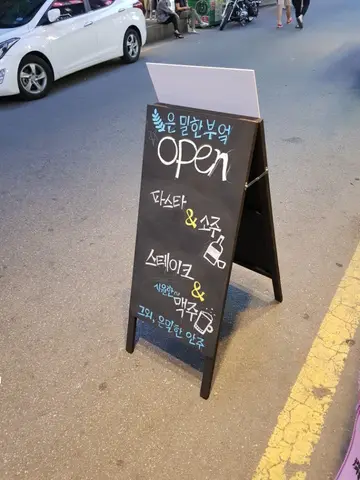 은밀한부엌
open
파스타
& 소주
스테이크
&
시원한 맥주
그외, 은밀한 안주